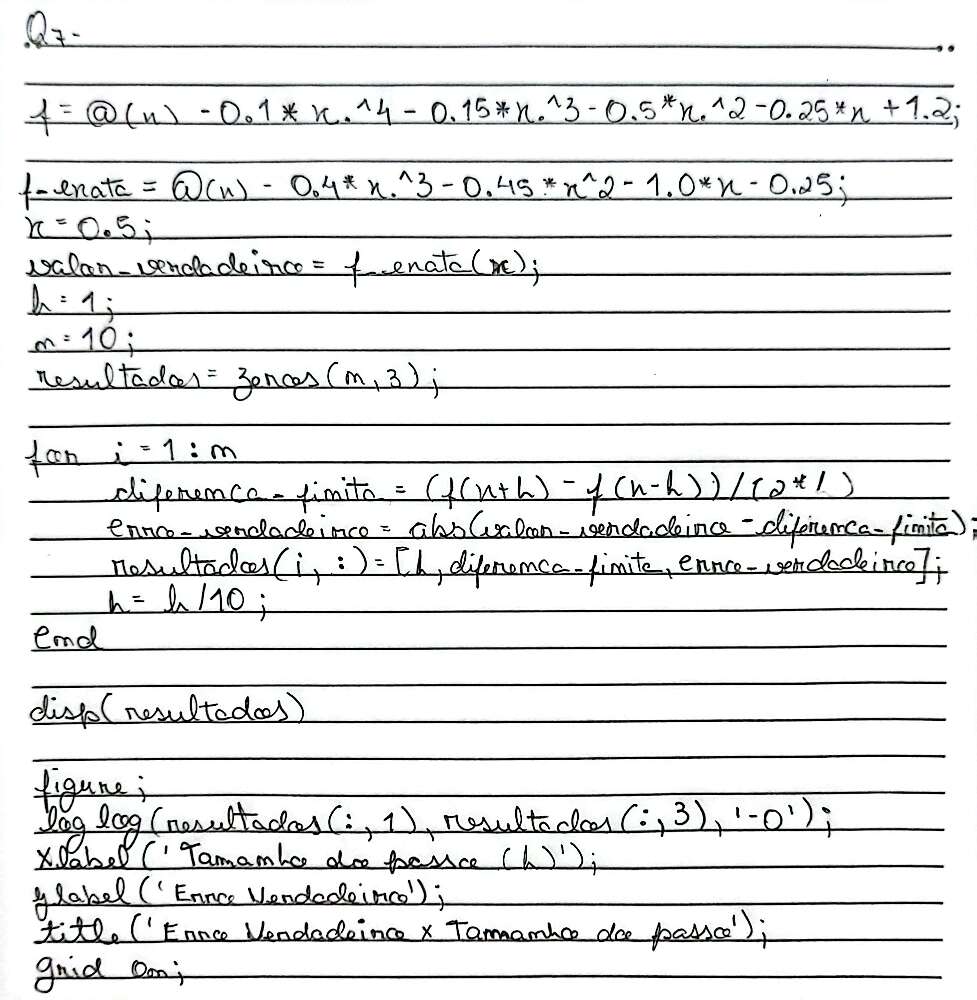 Q7-
f = @(x) - 0.1 * x.^4 - 0.15*x.^3 - 0.5*x.^2 - 0.25*x + 1.2;
f_exata = @(x) - 0.4* x.^3 - 0.45*x^2 - 1.0*x - 0.25;
x = 0.5;
valor_verdadeiro = f_exata(x);
h = 1;
n = 10;
resultados = zeros(n, 3);
for i = 1 : n
diferenca_finita = (f(x+h) - f(x-h)) / (2*
erro_verdadeiro = abs(valor_verdadeiro - diferenca_finita);
resultados(i, :) = [h, diferenca_finita, erro_verdadeiro];
h = h/10;
end
disp(resultados)
figure;
loglog(resultados(:, 1), resultados(:, 3), '-o');
xlabel('Tamanho do passo (h)');
ylabel('Erro Verdadeiro');
title('Erro Verdadeiro x Tamanho do passo');
grid on;